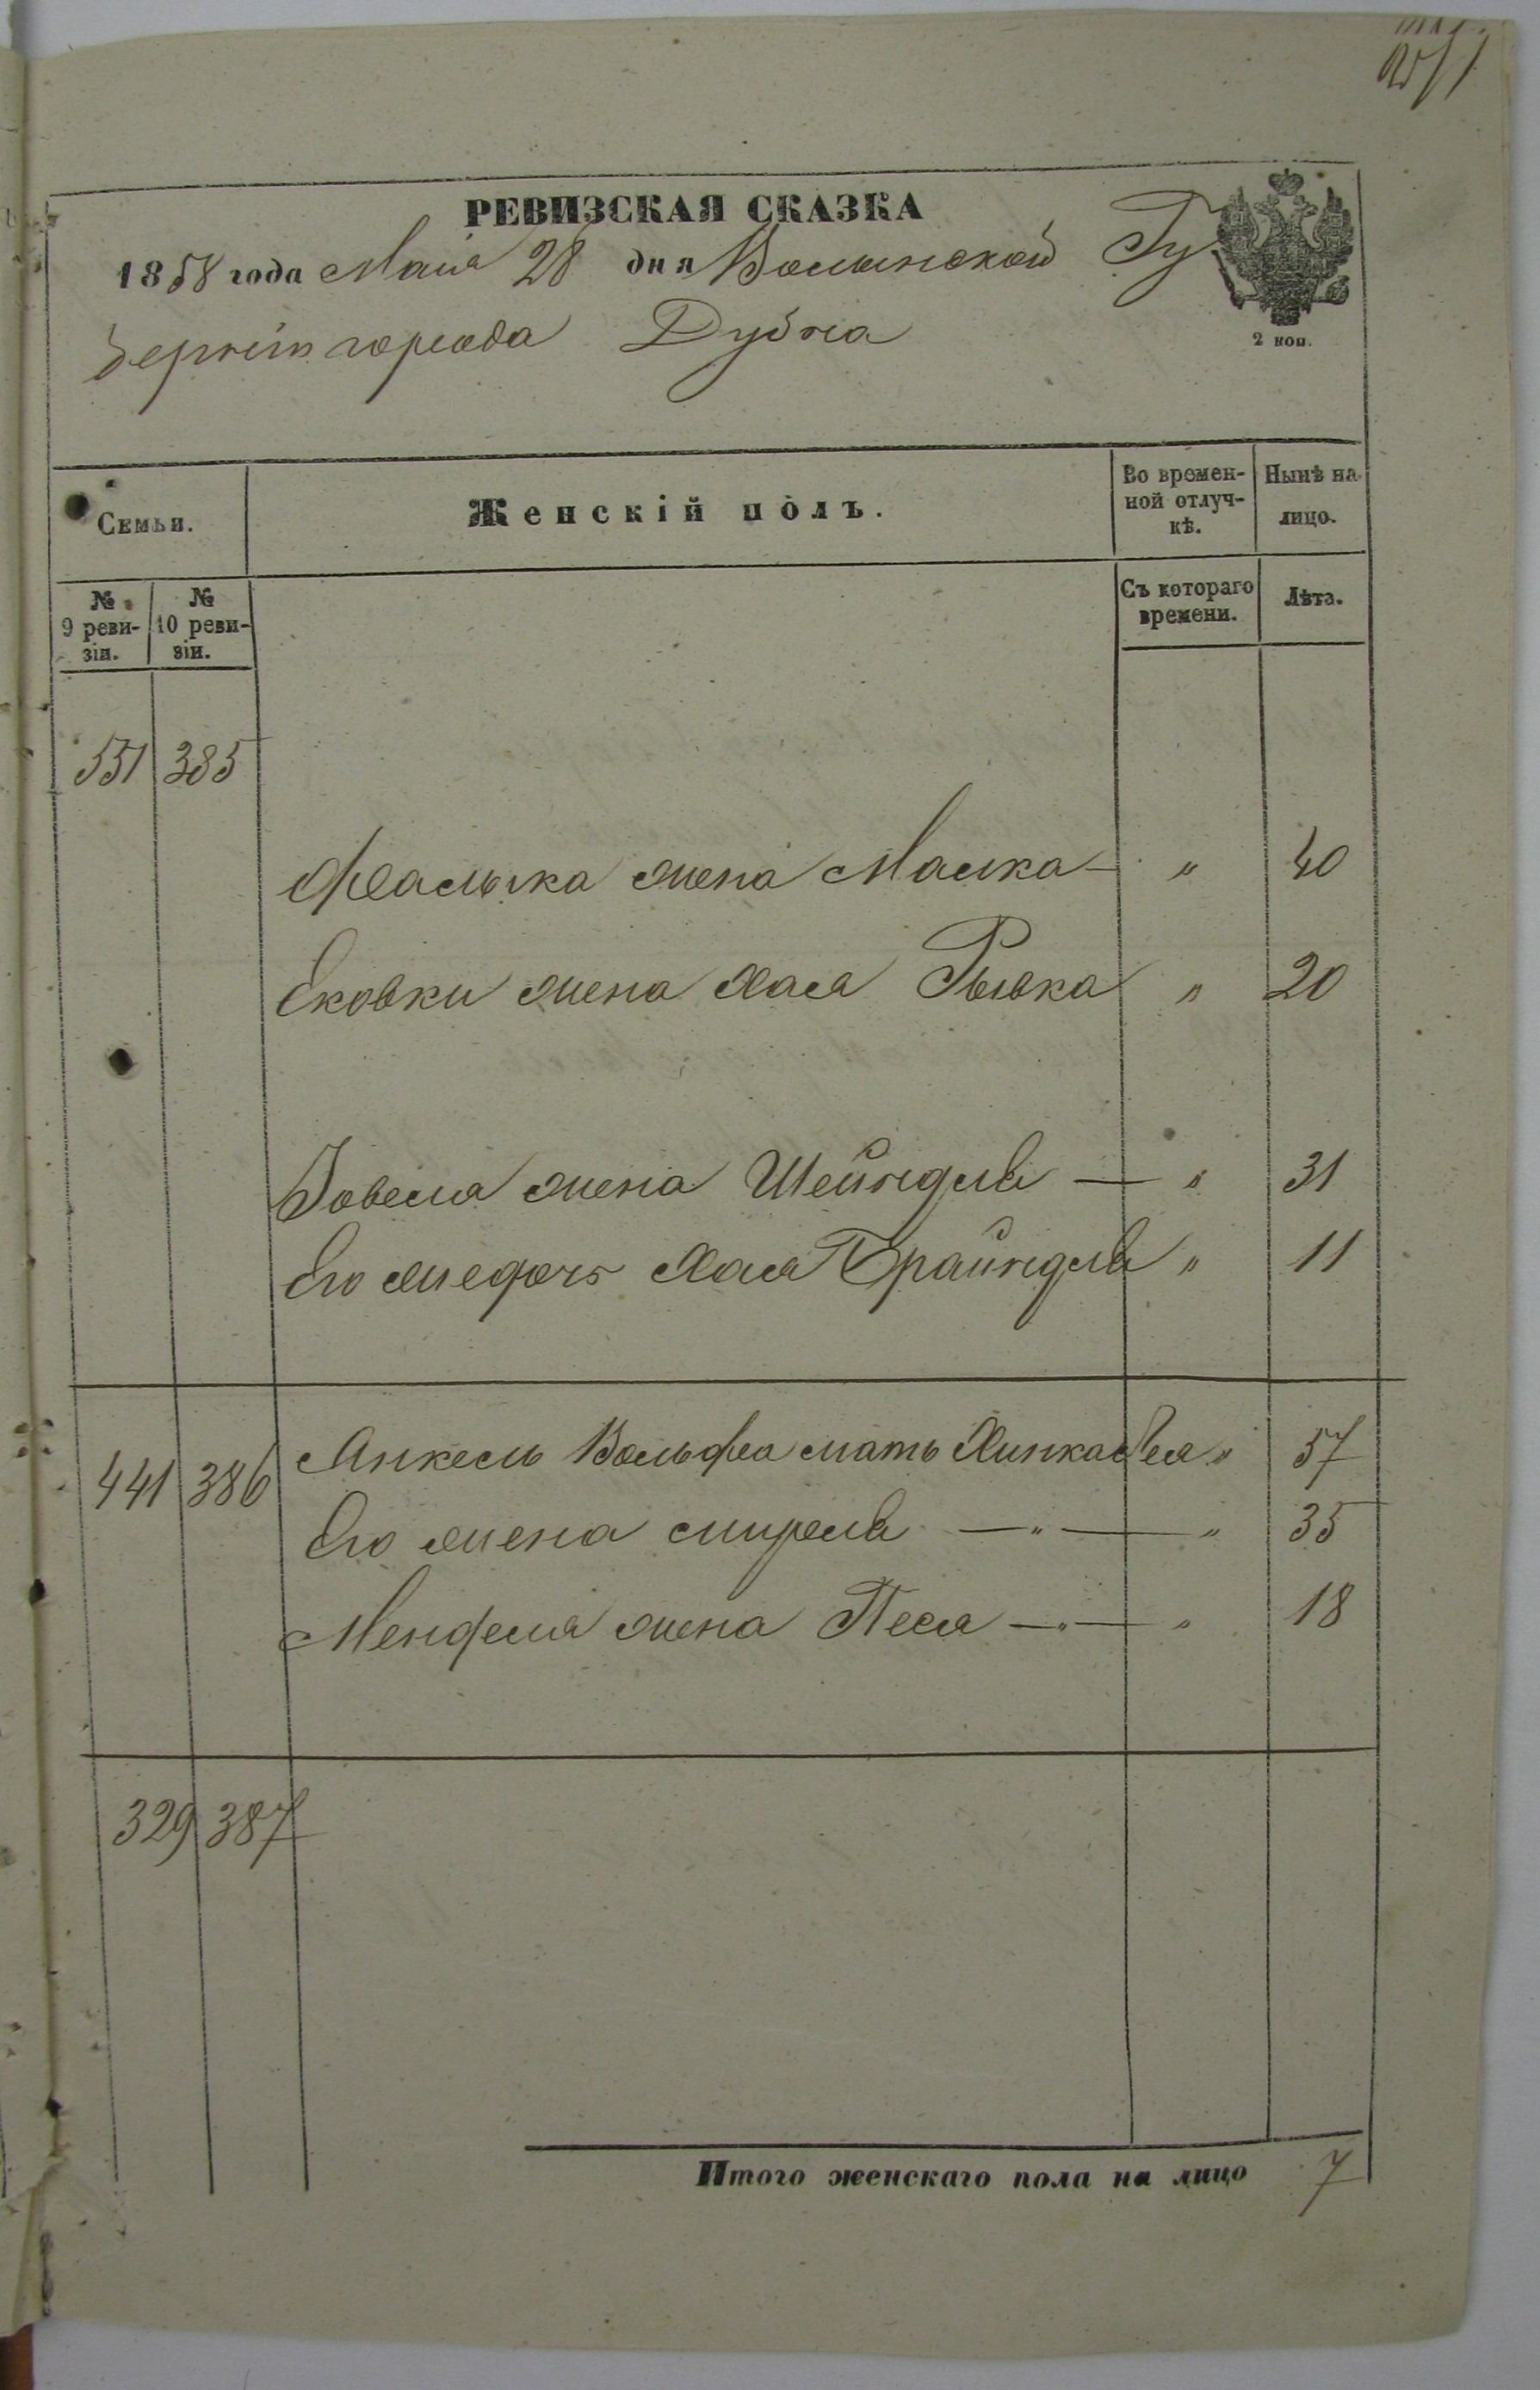 РЕВИЗСКАЯ СКАЗКА
1858 года Маія 28 дня Волынской Гу
берніи города Дубна
2 коп.
Семьи. Женскій полъ. Во времен-ной отлуч-кѣ. Нынѣ на лицо.
№ 9 реви-зіи. № 10 реви-зіи. Съ котораго времени. Лѣта.
551 385
Фалька жена Малка — " 40
Ековки жена Хая Рывка " 20
Іовеля жена Шейндля — " 31
Его же дочь Хая Брайндля " 11
441 386 Анкель Вольфа мать Хинка Лея " 57
Его жена Мирля — " — " 35
Менделя жена Песя — " — " 18
329 387
Итого женскаго пола на лицо 7